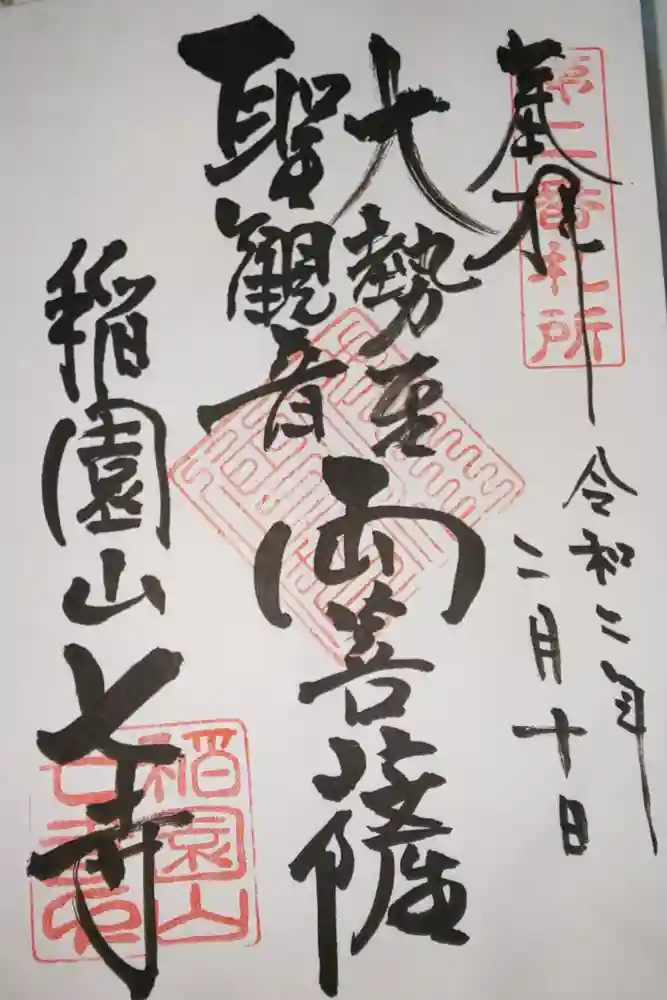 奉拝
第二番札所
令和二年
二月十日
大勢至
聖観音
両菩薩
稲園山
七寺
稲園山